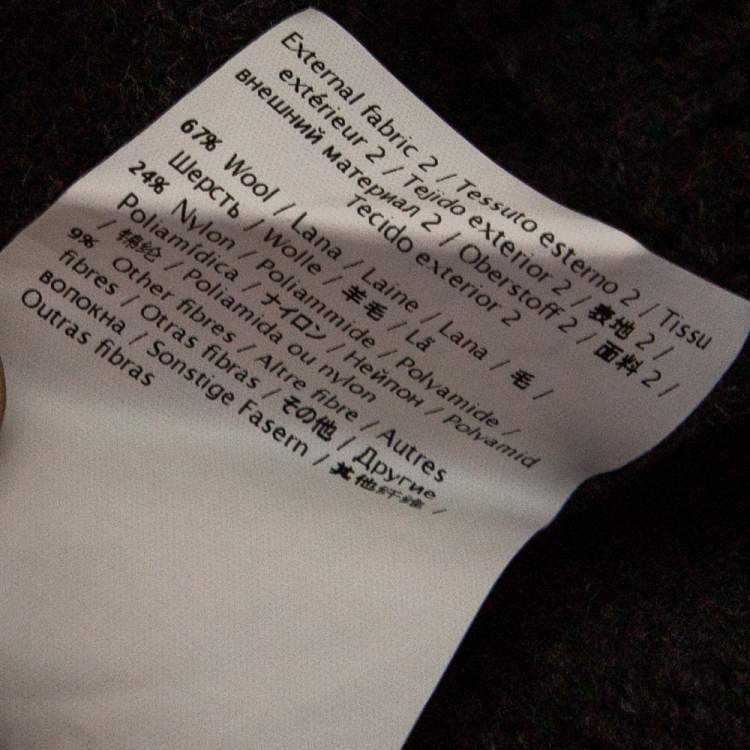 External fabric 2 / Tessuto esterno 2 / Tissu
extérieur 2 / Tejido exterior 2 / 表地 2 /
внешний материал 2 / Oberstoff 2 / 面料 2 /
Tecido exterior 2
67% Wool / Lana / Laine / Lana / 毛 /
Шерсть / Wolle / 羊毛 / Lã
24% Nylon / Poliammide / Polyamide /
Poliamídica / ナイロン / Нейлон / Polyamid
/ 锦纶 / Poliamida ou nylon
9% Other fibres / Altre fibre / Autres
fibres / Otras fibras / その他 / Другие
волокна / Sonstige Fasern / 其他纤维 /
Outras fibras